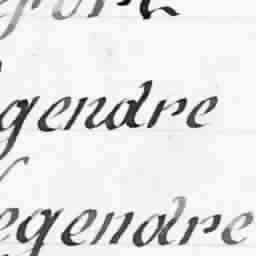 gendre
egendre